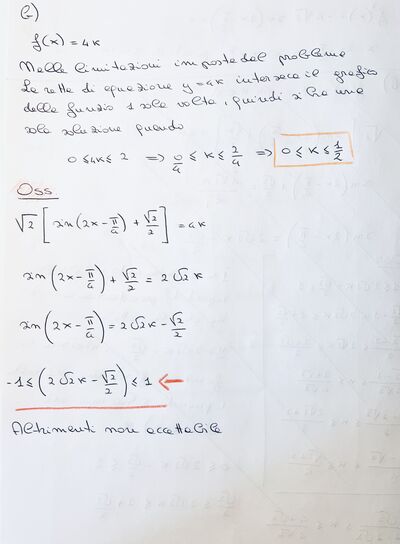 2)
f(x) = 4k
Nelle limitazioni imposte dal problema
la retta di equazione y=4k interseca il grafico
della funzio 1 sola volta, quindi si ha una
sola soluzione quando
0 ≤ 4k ≤ 2 ⇒ 0/4 ≤ k ≤ 2/4 ⇒ 0 ≤ k ≤ 1/2
Oss
√2 [ sin(2x - π/4) + √2/2 ] = 4k
sin(2x - π/4) + √2/2 = 2√2 k
sin(2x - π/4) = 2√2 k - √2/2
-1 ≤ (2√2 k - √2/2) ≤ 1 ←
Altrimenti non accettabile